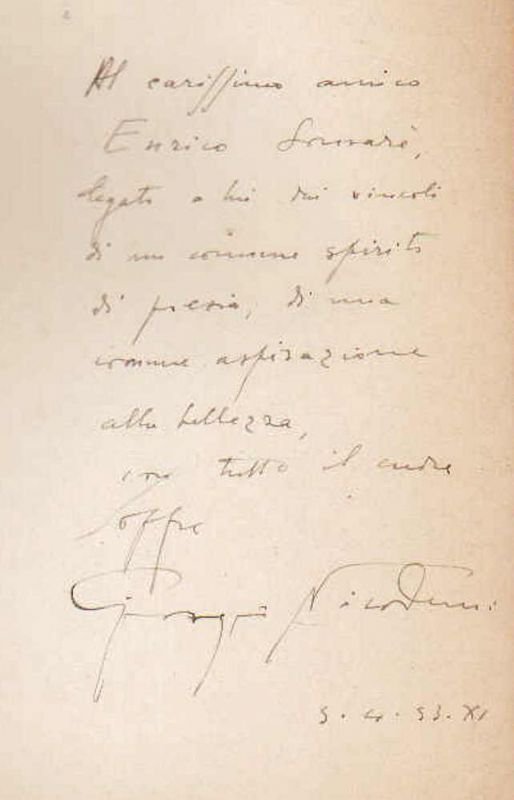 Al carissimo amico
Enrico Somaré,
legato a lui dai vincoli
di un comune spirito
di poesia, di una
comune aspirazione
alla bellezza,
con tutto il cuore
offre
Giorgio Nicodemi
3.4.33.XI